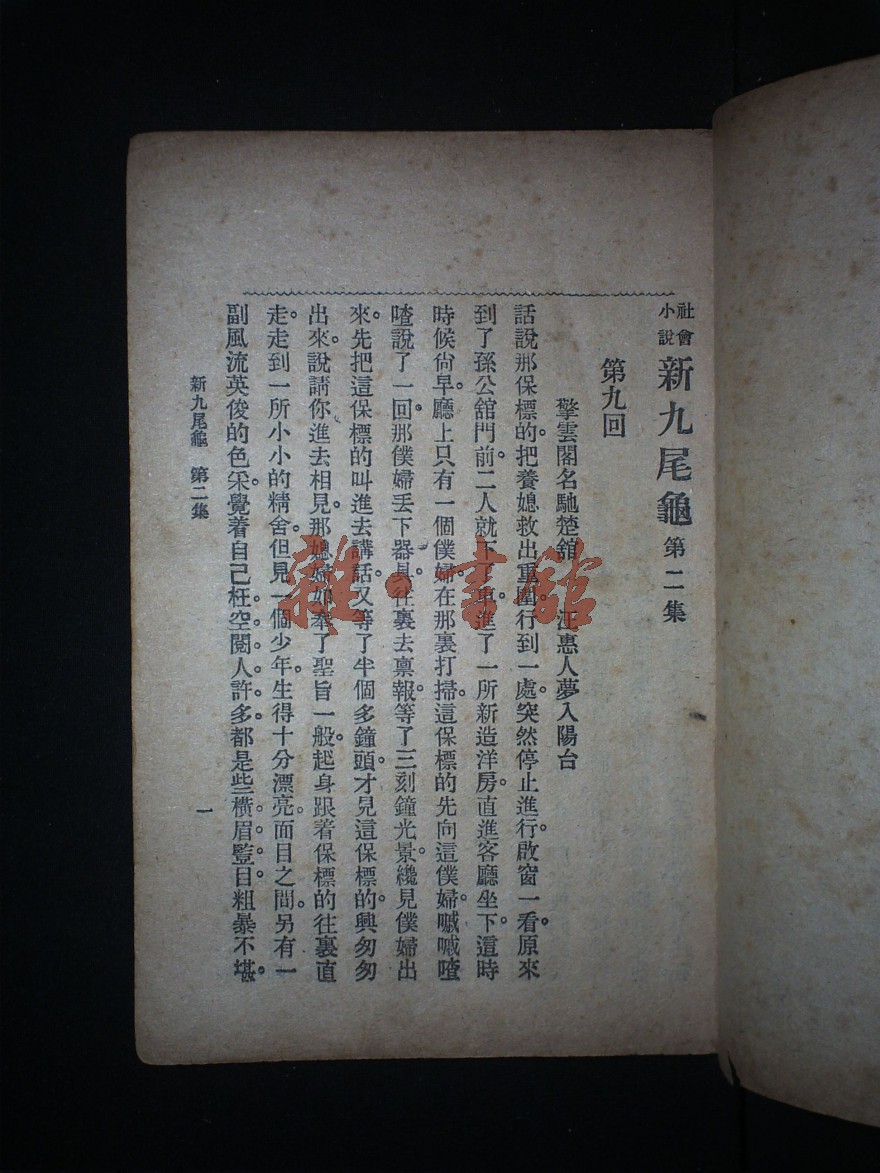 社會小說 新九尾龜 第二集
第九回
擎雲閣名馳楚舘 汪惠人夢入陽台
話說那保標的。把養媳救出重圍。行到一處。突然停止進行。啟窗一看。原來
到了孫公舘門前。二人就下了車。進了一所新造洋房。直進客廳坐下。這時
時候尙早。廳上只有一個僕婦。在那裏打掃。這保標的先向這僕婦。嘁嘁喳
喳說了一回。那僕婦丟下器具。往裏去禀報。等了三刻鐘光景。纔見僕婦出
來。先把這保標的叫進去講話。又等了半個多鐘頭。才見這保標的。興匆匆
出來。說請你進去相見。那媳婦如奉了聖旨一般。起身跟着保標的往裏直
走。走到一所小小的精舍。但見一個少年。生得十分漂亮。面目之間。另有一
副風流英俊的色采。覺着自己枉空閱人許多。都是些橫眉豎目。粗暴不堪。
新九尾龜 第二集
一
雜·書舘